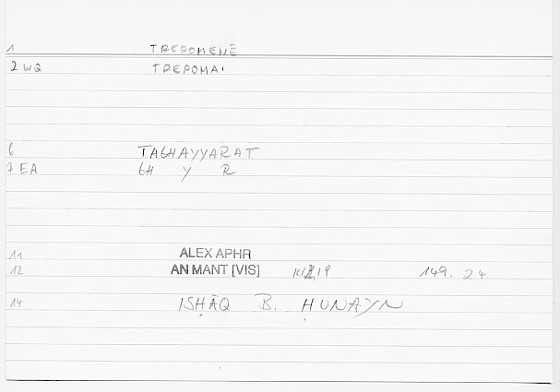 1 TREPOMENĒ
2 WQ TREPOMAI
6 TAGHAYYARAT
7 EA GH Y R
11 ALEX APHR
12 AN MANT [VIS] 149. 24
14 ISḤĀQ B. ḤUNAYN